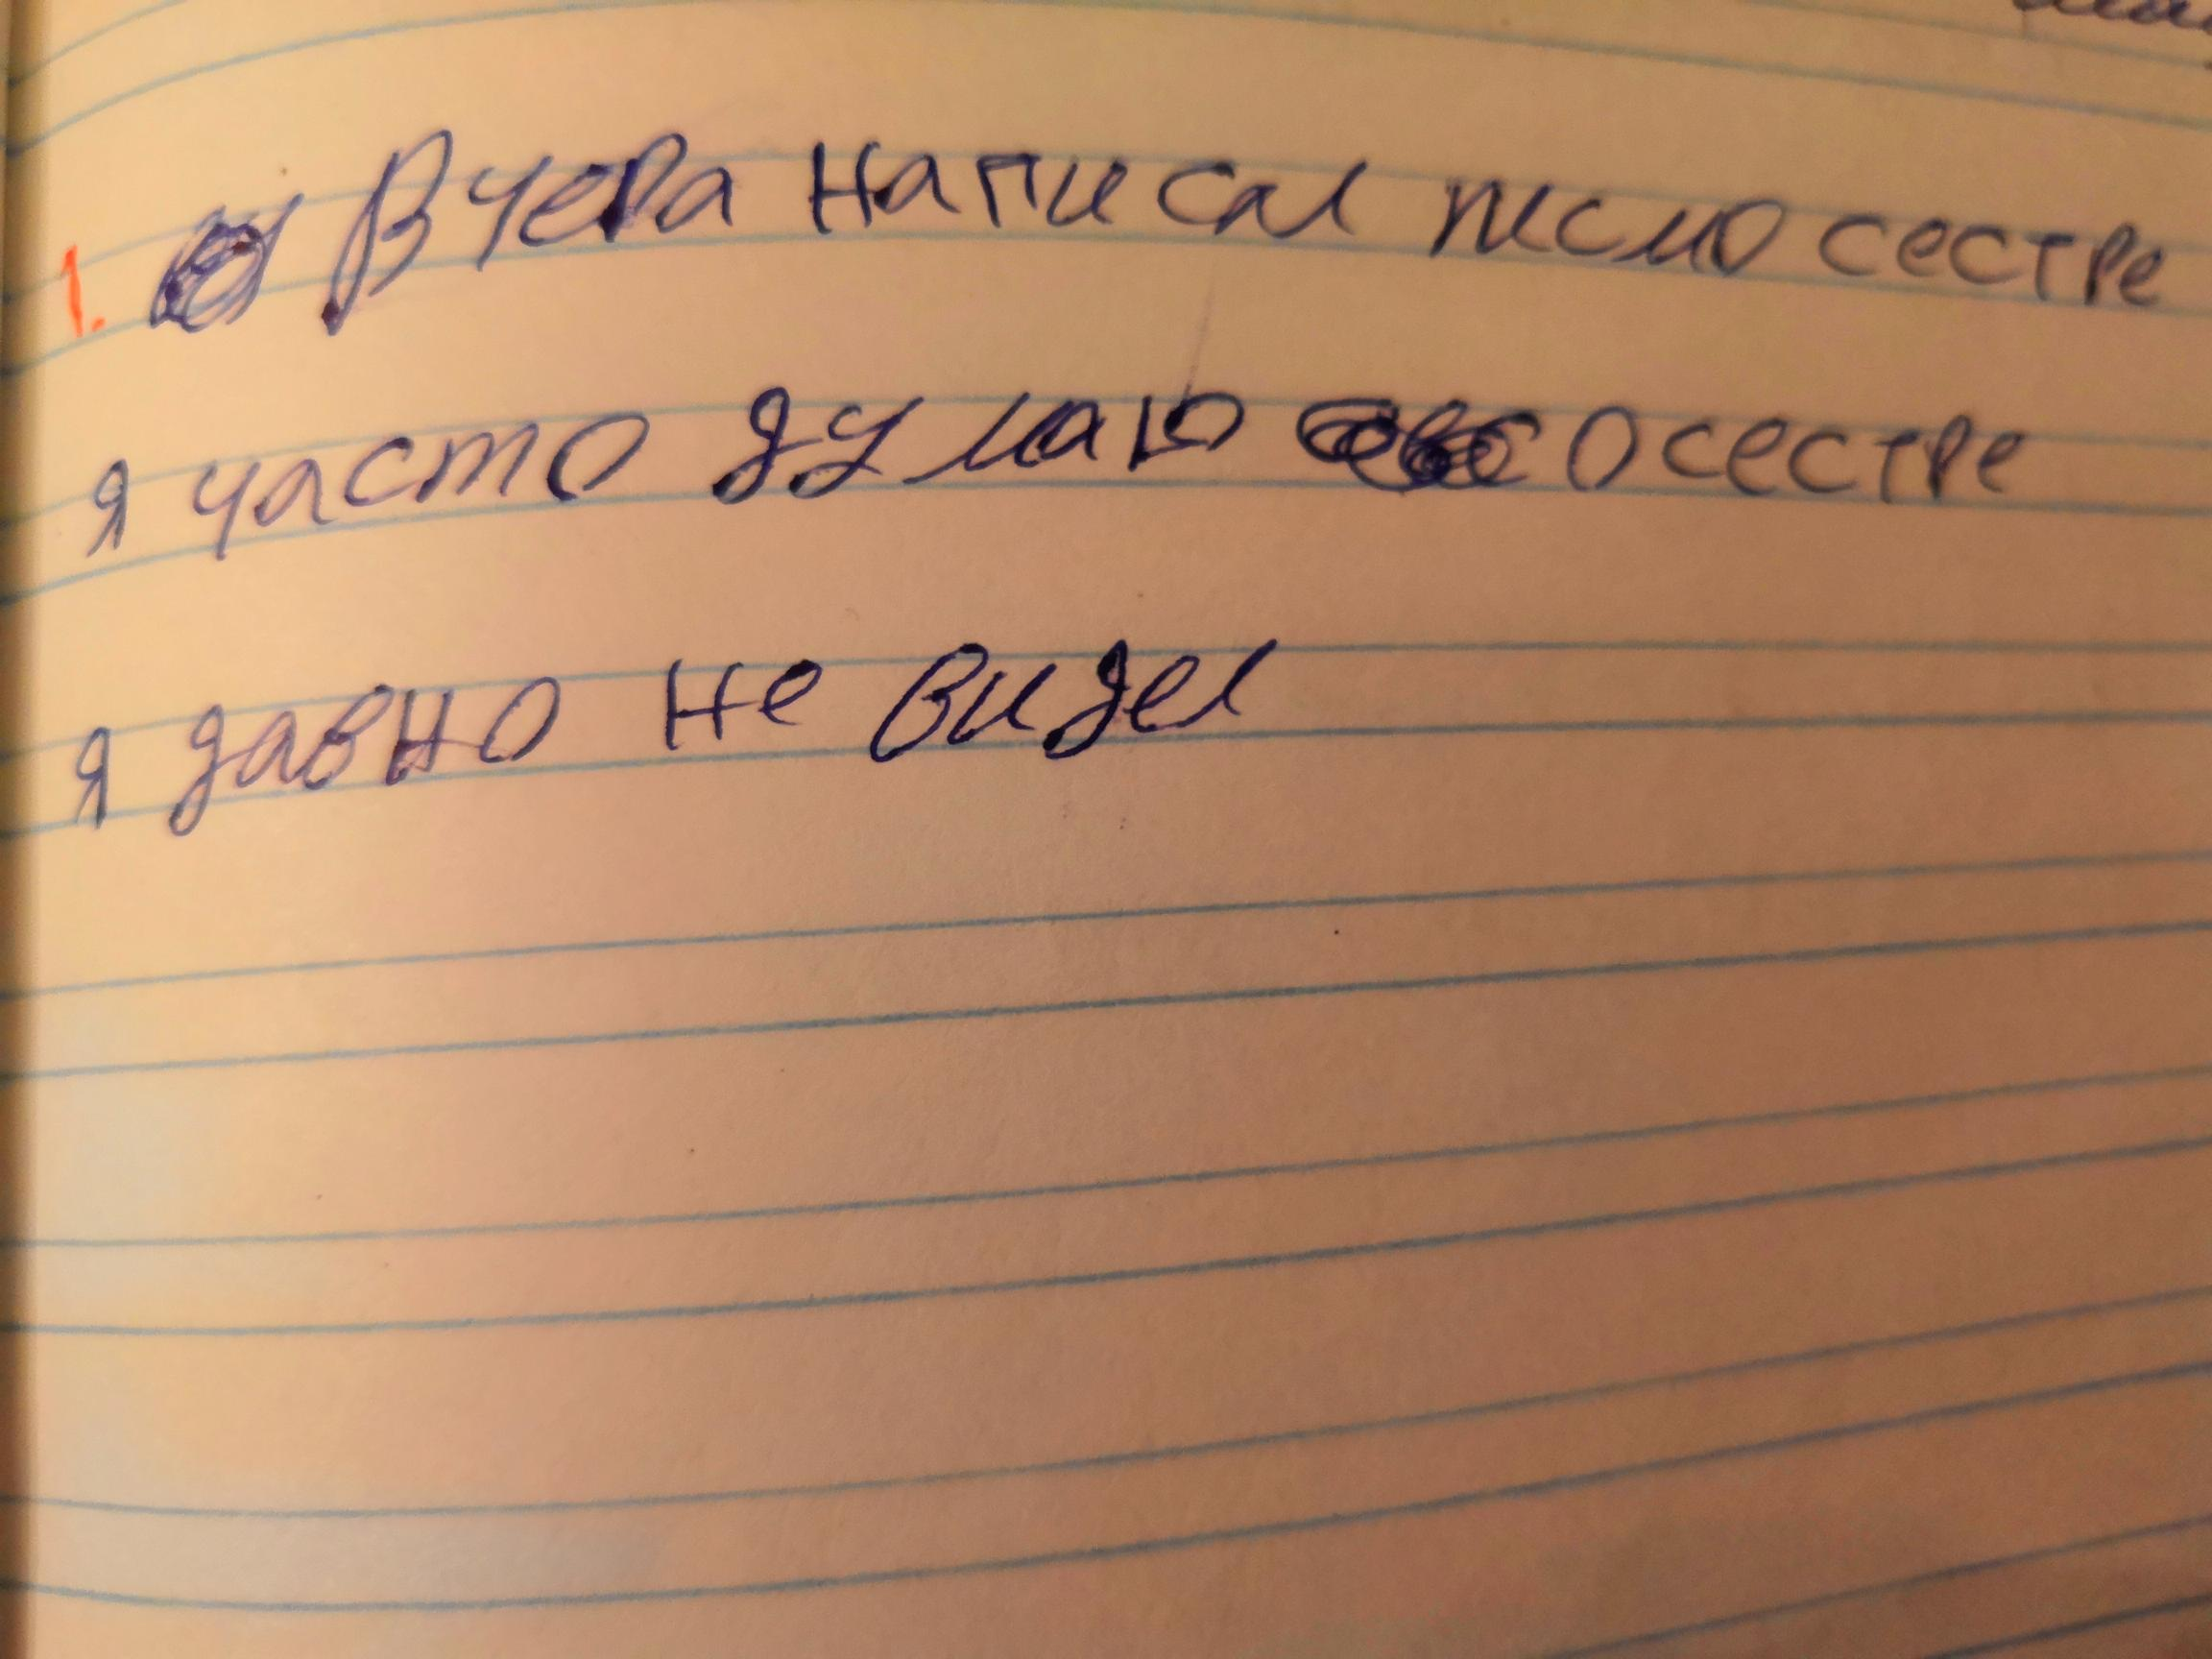 1. Вчера написал писмо сестре
я часто думаю о сестре
я давно не видел